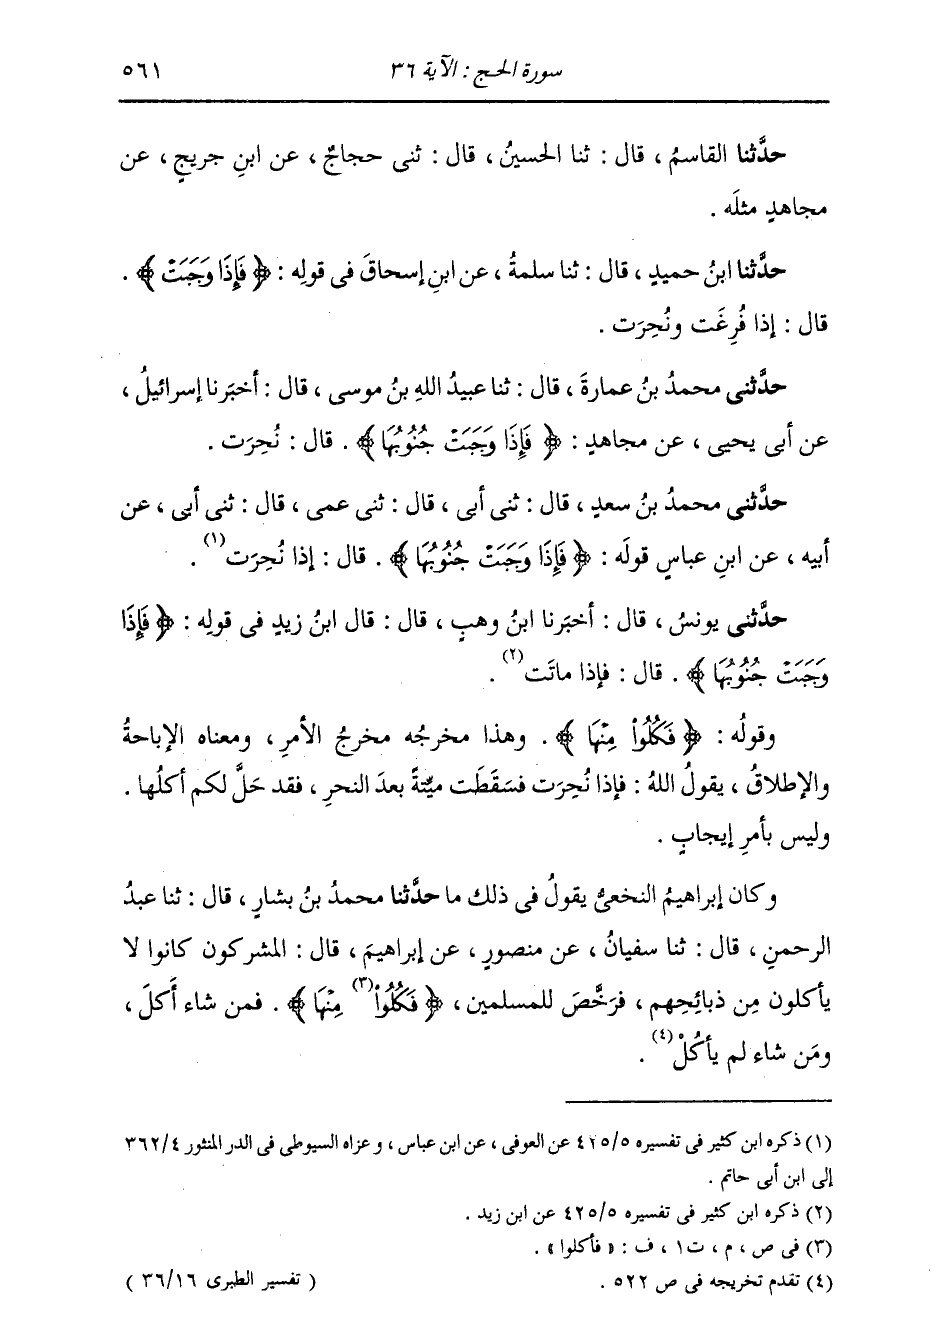 سورة الحج : الآية ٣٦ ٥٦١
حدَّثنا القاسمُ ، قال : ثنا الحسينُ ، قال : ثنى حجاجٌ ، عن ابنِ جريجٍ ، عن
مجاهدٍ مثلَه .
حدَّثنا ابنُ حميدٍ ، قال : ثنا سلمةُ ، عن ابنِ إسحاقَ فى قولِه : ﴿ فَإِذَا وَجَبَتْ ﴾ .
قال : إذا فُرِغَت ونُحِرَت .
حدَّثنى محمدُ بنُ عمارةَ ، قال : ثنا عبيدُ اللهِ بنُ موسى ، قال : أخبَرنا إسرائيلُ ،
عن أبى يحيى ، عن مجاهدٍ : ﴿ فَإِذَا وَجَبَتْ جُنُوبُهَا ﴾ . قال : نُحِرَت .
حدَّثنى محمدُ بنُ سعدٍ ، قال : ثنى أبى ، قال : ثنى عمى ، قال : ثنى أبى ، عن
أبيه ، عن ابنِ عباسٍ قولَه : ﴿ فَإِذَا وَجَبَتْ جُنُوبُهَا ﴾ . قال : إذا نُحِرَت(١) .
حدَّثنى يونسُ ، قال : أخبَرنا ابنُ وهبٍ ، قال : قال ابنُ زيدٍ فى قولِه : ﴿ فَإِذَا
وَجَبَتْ جُنُوبُهَا ﴾ . قال : فإذا ماتَت(٢) .
وقولُه : ﴿ فَكُلُواْ مِنْهَا ﴾ . وهذا مخرجُه مخرجُ الأمرِ ، ومعناه الإباحةُ
والإطلاقُ ، يقولُ اللهُ : فإذا نُحِرَت فسَقَطَت ميِّتةً بعدَ النحرِ ، فقد حَلَّ لكم أكلُها .
وليس بأمرِ إيجابٍ .
وكان إبراهيمُ النخعىُّ يقولُ فى ذلك ما حدَّثنا محمدُ بنُ بشارٍ ، قال : ثنا عبدُ
الرحمنِ ، قال : ثنا سفيانُ ، عن منصورٍ ، عن إبراهيمَ ، قال : المشركون كانوا لا
يأكلون مِن ذبائِحِهم ، فرَخَّصَ للمسلمين ، ﴿ فَكُلُواْ(٣) مِنْهَا ﴾ . فمن شاء أَكلَ ،
ومَن شاء لم يأكُلْ(٤) .
(١) ذكره ابن كثير فى تفسيره ٤٢٥/٥ عن العوفى ، عن ابن عباس ، وعزاه السيوطى فى الدر المنثور ٣٦٢/٤
إلى ابن أبى حاتم .
(٢) ذكره ابن كثير فى تفسيره ٤٢٥/٥ عن ابن زيد .
(٣) فى ص ، م ، ت١ ، ف : « فأكلوا » .
(٤) تقدم تخريجه فى ص ٥٢٢ . ( تفسير الطبرى ٣٦/١٦ )